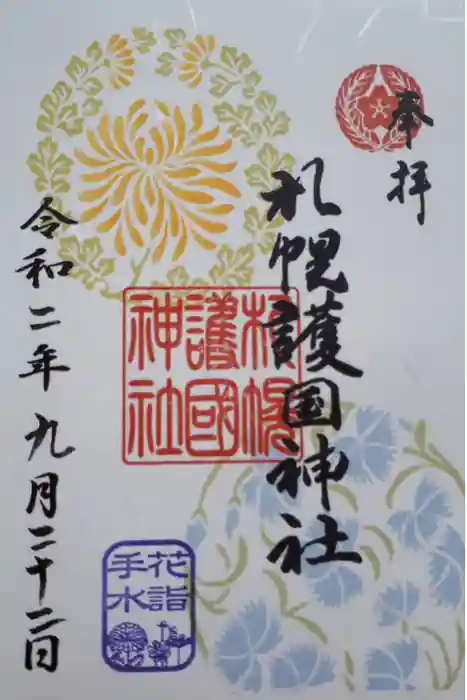 奉拝
札幌護国神社
札幌
護國
神社
令和二年九月二十二日
花詣
手水